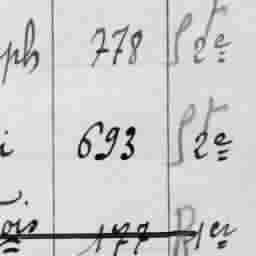 ph 778 2e
i 693 2e
ois 177 R 1er